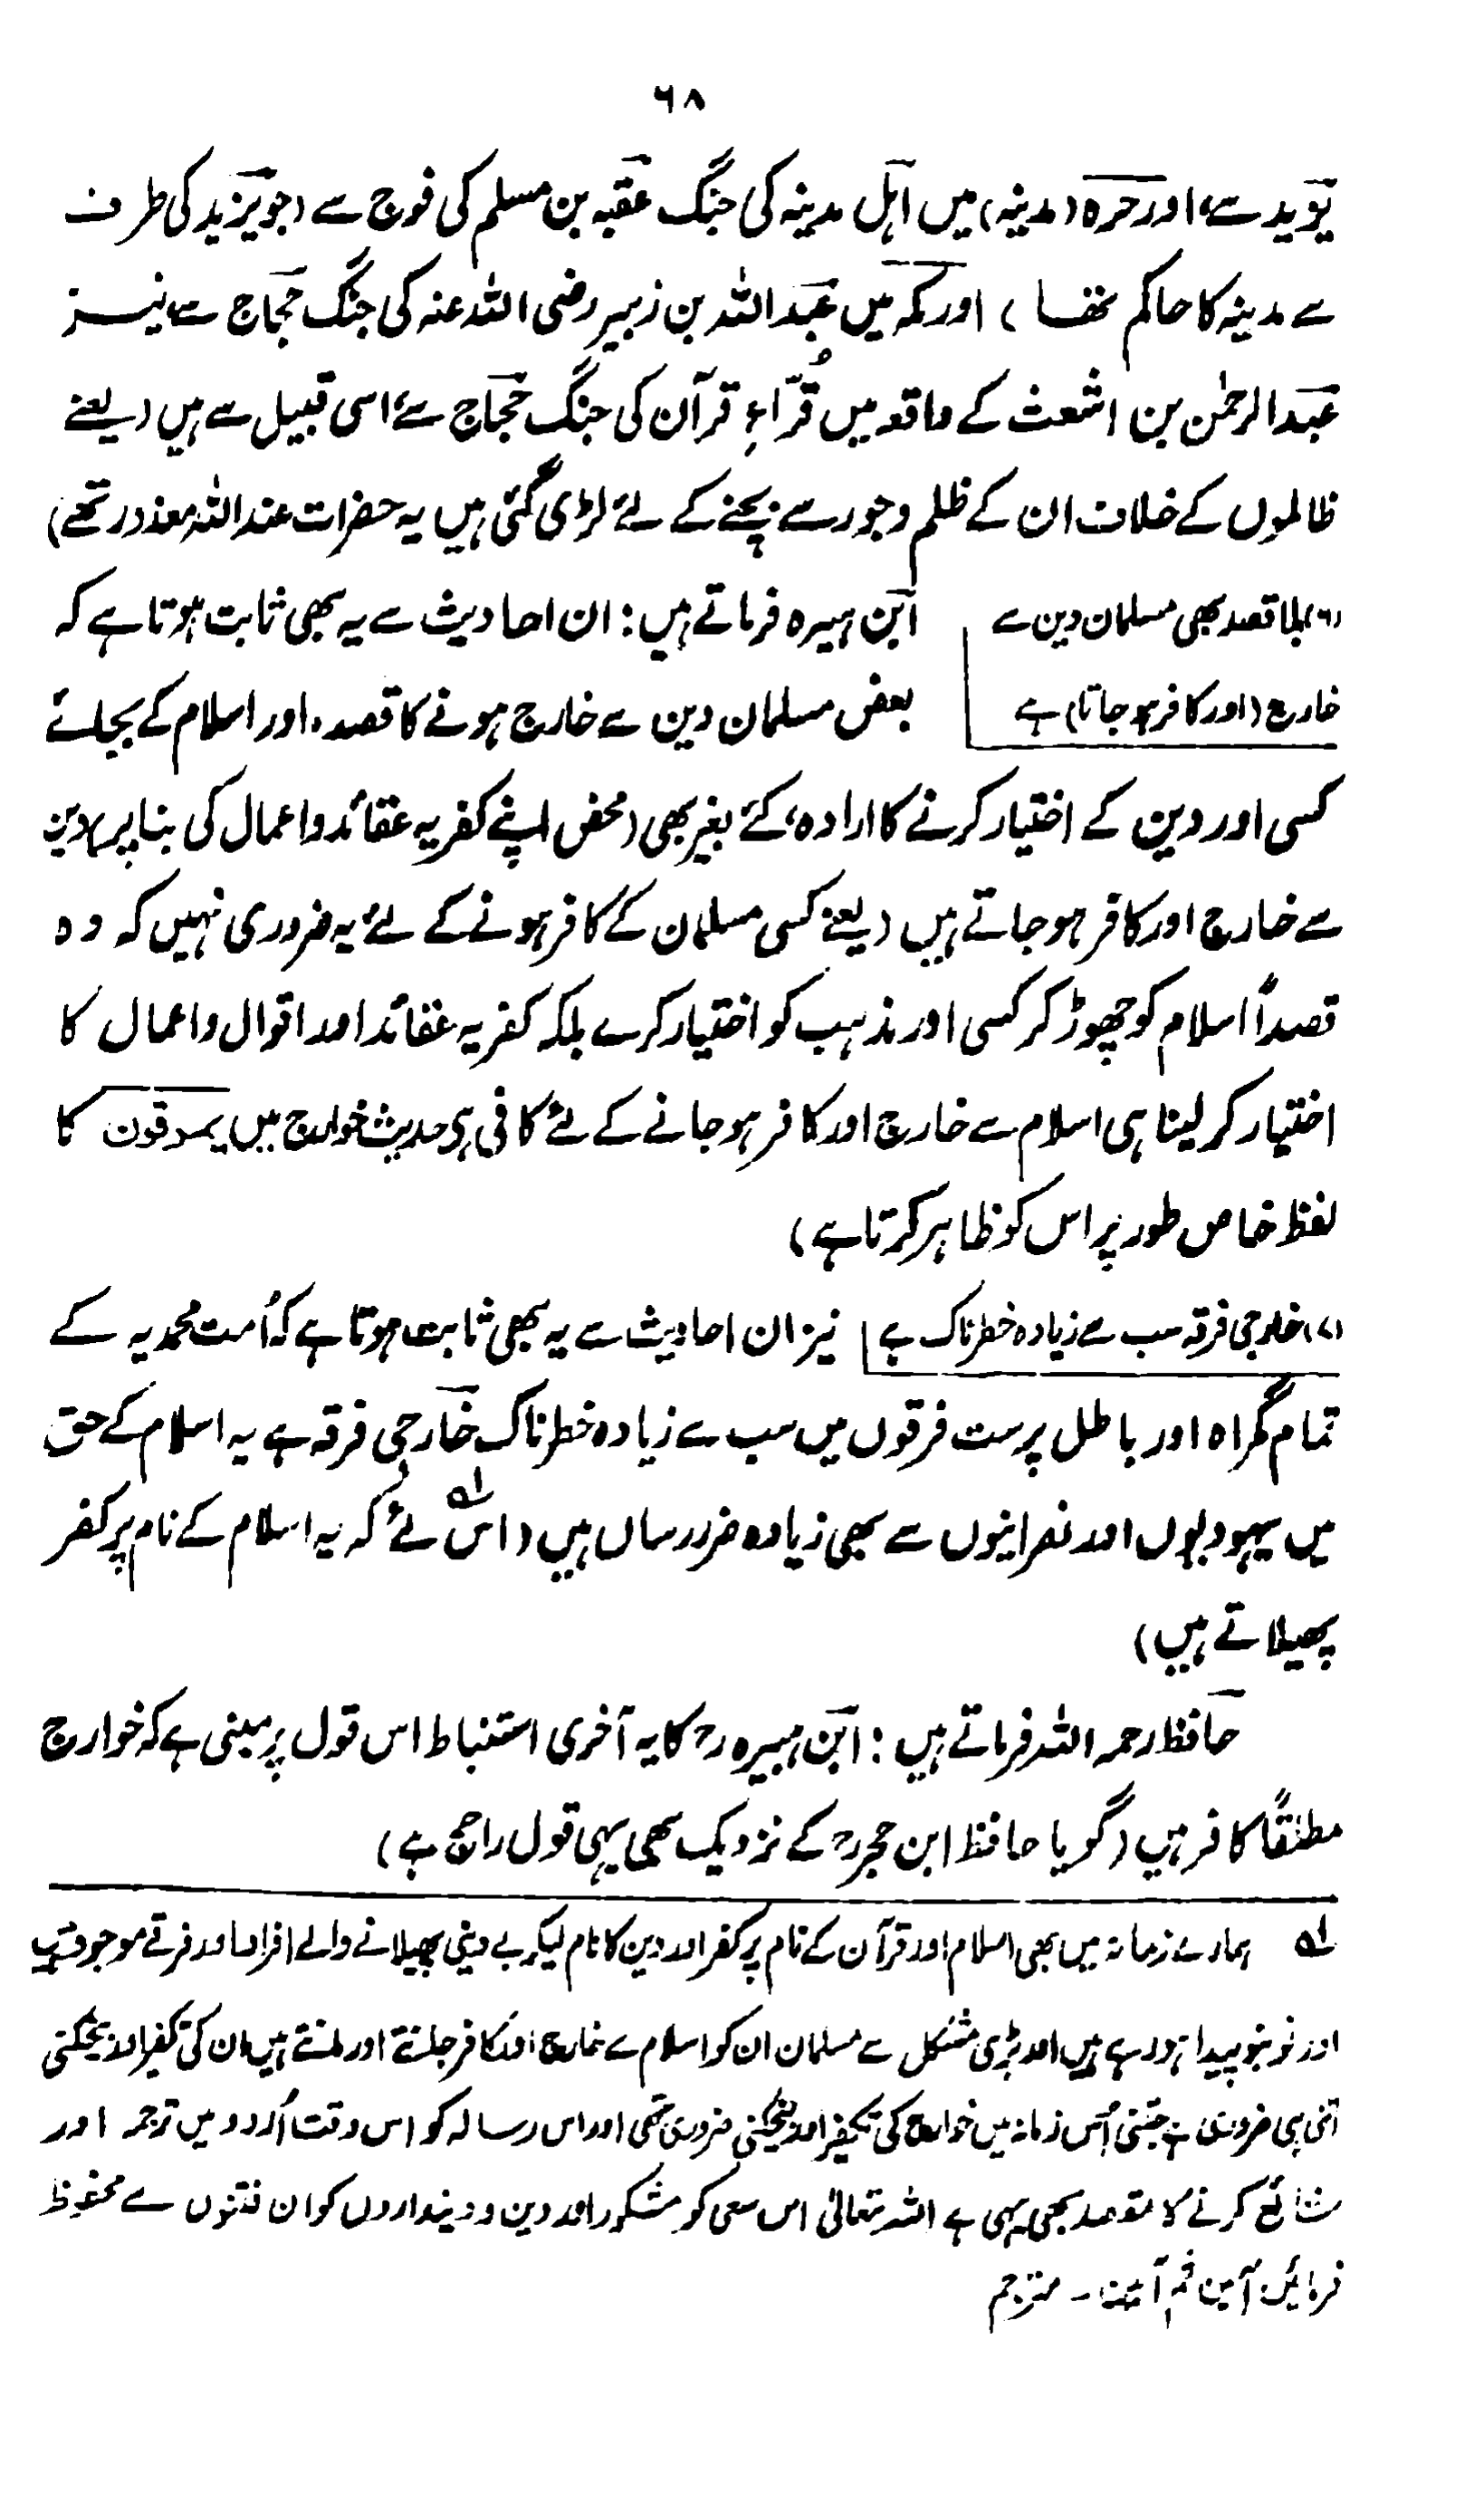 ۶۸
یزید سے، اور حرہ (مدینہ) میں اہل مدینہ کی جنگ عقبہ بن مسلم کی فوج سے (جو یزید کی طرف
سے مدینہ کا حاکم تھا) اور مکہ میں عبداللہ بن زبیر رضی اللہ عنہ کی جنگ حجاج سے نیز
عبدالرحمٰن بن اشعث کے واقعہ میں قُرّاءِ قرآن کی جنگ حجاج سے، اسی قبیل سے ہیں (یعنے
ظالموں کے خلاف ان کے ظلم وجور سے بچنے کے لئے لڑی گئی ہیں یہ حضرات عنداللہ معذور تھے)
(۶) بلا قصد بھی مسلمان دین سے
خارج (اور کافر ہو جاتا) ہے
ابن ہبیرہ فرماتے ہیں: ان احادیث سے یہ بھی ثابت ہوتا ہے کہ
بعض مسلمان دین سے خارج ہونے کا قصد، اور اسلام کے بجائے
کسی اور دین کے اختیار کرنے کا ارادہ، کئے بغیر بھی (محض اپنے کفریہ عقائد واعمال کی بنا پر) دین
سے خارج اور کافر ہو جاتے ہیں (یعنے کسی مسلمان کے کافر ہونے کے لئے یہ ضروری نہیں کہ وہ
قصداً اسلام کو چھوڑ کر کسی اور مذہب کو اختیار کرے بلکہ کفریہ عقائد اور اقوال واعمال کا
اختیار کر لینا ہی اسلام سے خارج اور کافر ہو جانے کے لئے کافی ہی حدیث خوارج میں یمرقون کا
لفظ خاص طور پر اس کو ظاہر کرتا ہے)
(۷) خارجی فرقہ سب سے زیادہ خطرناک ہے
نیز ان احادیث سے یہ بھی ثابت ہوتا ہے کہ اُمت محمدیہ کے
تمام گمراہ اور باطل پرست فرقوں میں سب سے زیادہ خطرناک خارجی فرقہ ہے یہ اسلام کے حق
میں یہودیوں اور نصرانیوں سے بھی زیادہ ضرر رساں ہیں (اس لئے کہ یہ اسلام کے نام پر کفر
پھیلاتے ہیں)
حافظ رحمہ اللہ فرماتے ہیں: ابن ہبیرہ رح کا یہ آخری استنباط اس قول پر مبنی ہے کہ خوارج
مطلقاً کافر ہیں (گویا حافظ ابن حجر رح کے نزدیک بھی یہی قول راجح ہے)
لہ ہمارے زمانہ میں بھی اسلام اور قرآن کے نام پر کفر اور دین کا نام لیکر بے دینی پھیلانے والے افراد اور فرقے موجود ہیں
اور نو بنو پیدا ہو رہے ہیں اور بڑی مشکل سے مسلمان ان کو اسلام سے خارج اور کافر جانتے اور مانتے ہیں ان کی تکفیر اور بیخکنی
اتنی ہی ضروری ہے جتنی اُس زمانہ میں خوارج کی تکفیر اور بیخکنی ضروری تھی اور اس رسالہ کو اس وقت اُردو میں ترجمہ اور
شائع کرنے کا مقصد بھی یہی ہے اللہ تعالیٰ اس سعی کو مشکور اور دین و دینداروں کو ان فتنوں سے محفوظ
فرمائیں آمین ثم آمین۔ مترجم